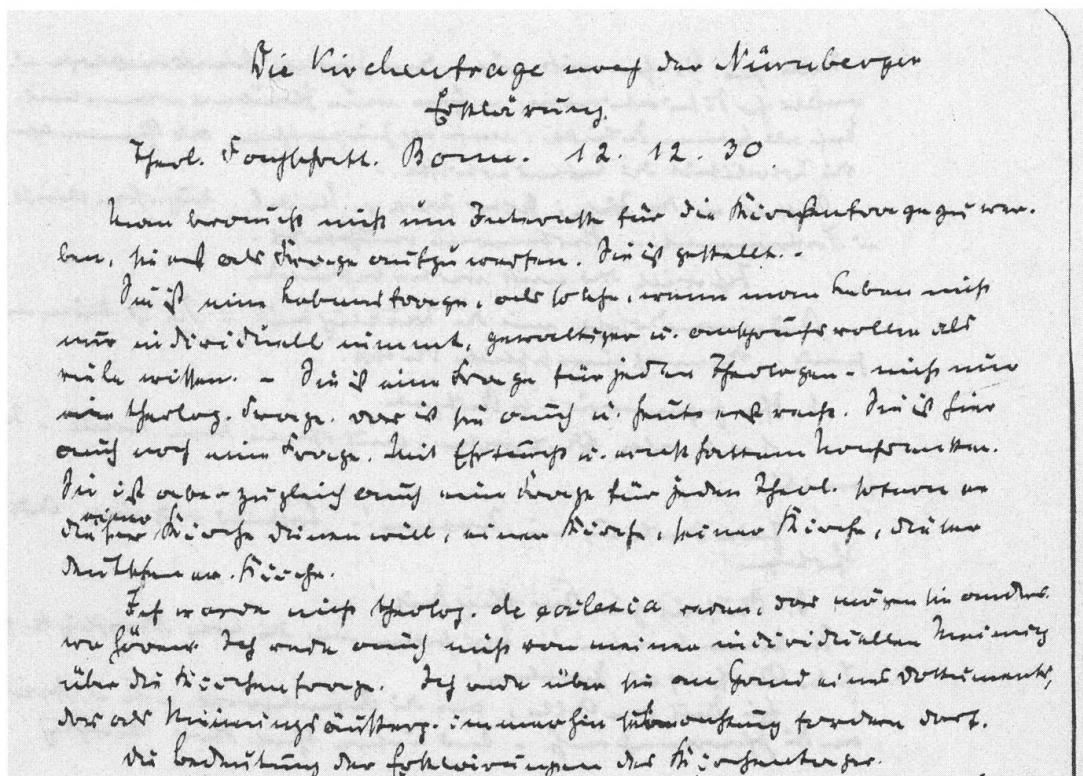 Die Kirchenfrage nach der Nürnberger
Erklärung.
Theol. Fachschaft. Bonn. 12. 12. 30.
Man braucht nicht um Interesse für die Kirchenfrage zu wer-
ben, sie erst als Frage aufzuwerfen. Sie ist gestellt. -
Sie ist eine Lebensfrage, als solche, wenn man Leben nicht
nur individuell nimmt, gewaltiger u. anspruchsvoller als
viele wissen. - Sie ist eine Frage für jeden Theologen - nicht nur
eine theolog. Frage. das ist sie auch u. heute erst recht. Sie ist hier
auch noch eine Frage. Mit Ehrfurcht u.
Sie ist aber zugleich auch eine Frage für jeden Theol. sofern er
einer Kirche dienen will, einer Kirche, seiner Kirche, dieser
deutschen ev. Kirche.
Ich werde nicht theolog. de ecclesia reden, das mögen sie anders-
wo hören. Ich rede auch nicht von meiner individuellen Meinung
über die Kirchenfrage. Ich rede über sie an Hand eines Dokuments,
das als Meinungsäußerg. immerhin fordern darf.
Die Bedeutung der Erklärungen des Kirchentages.